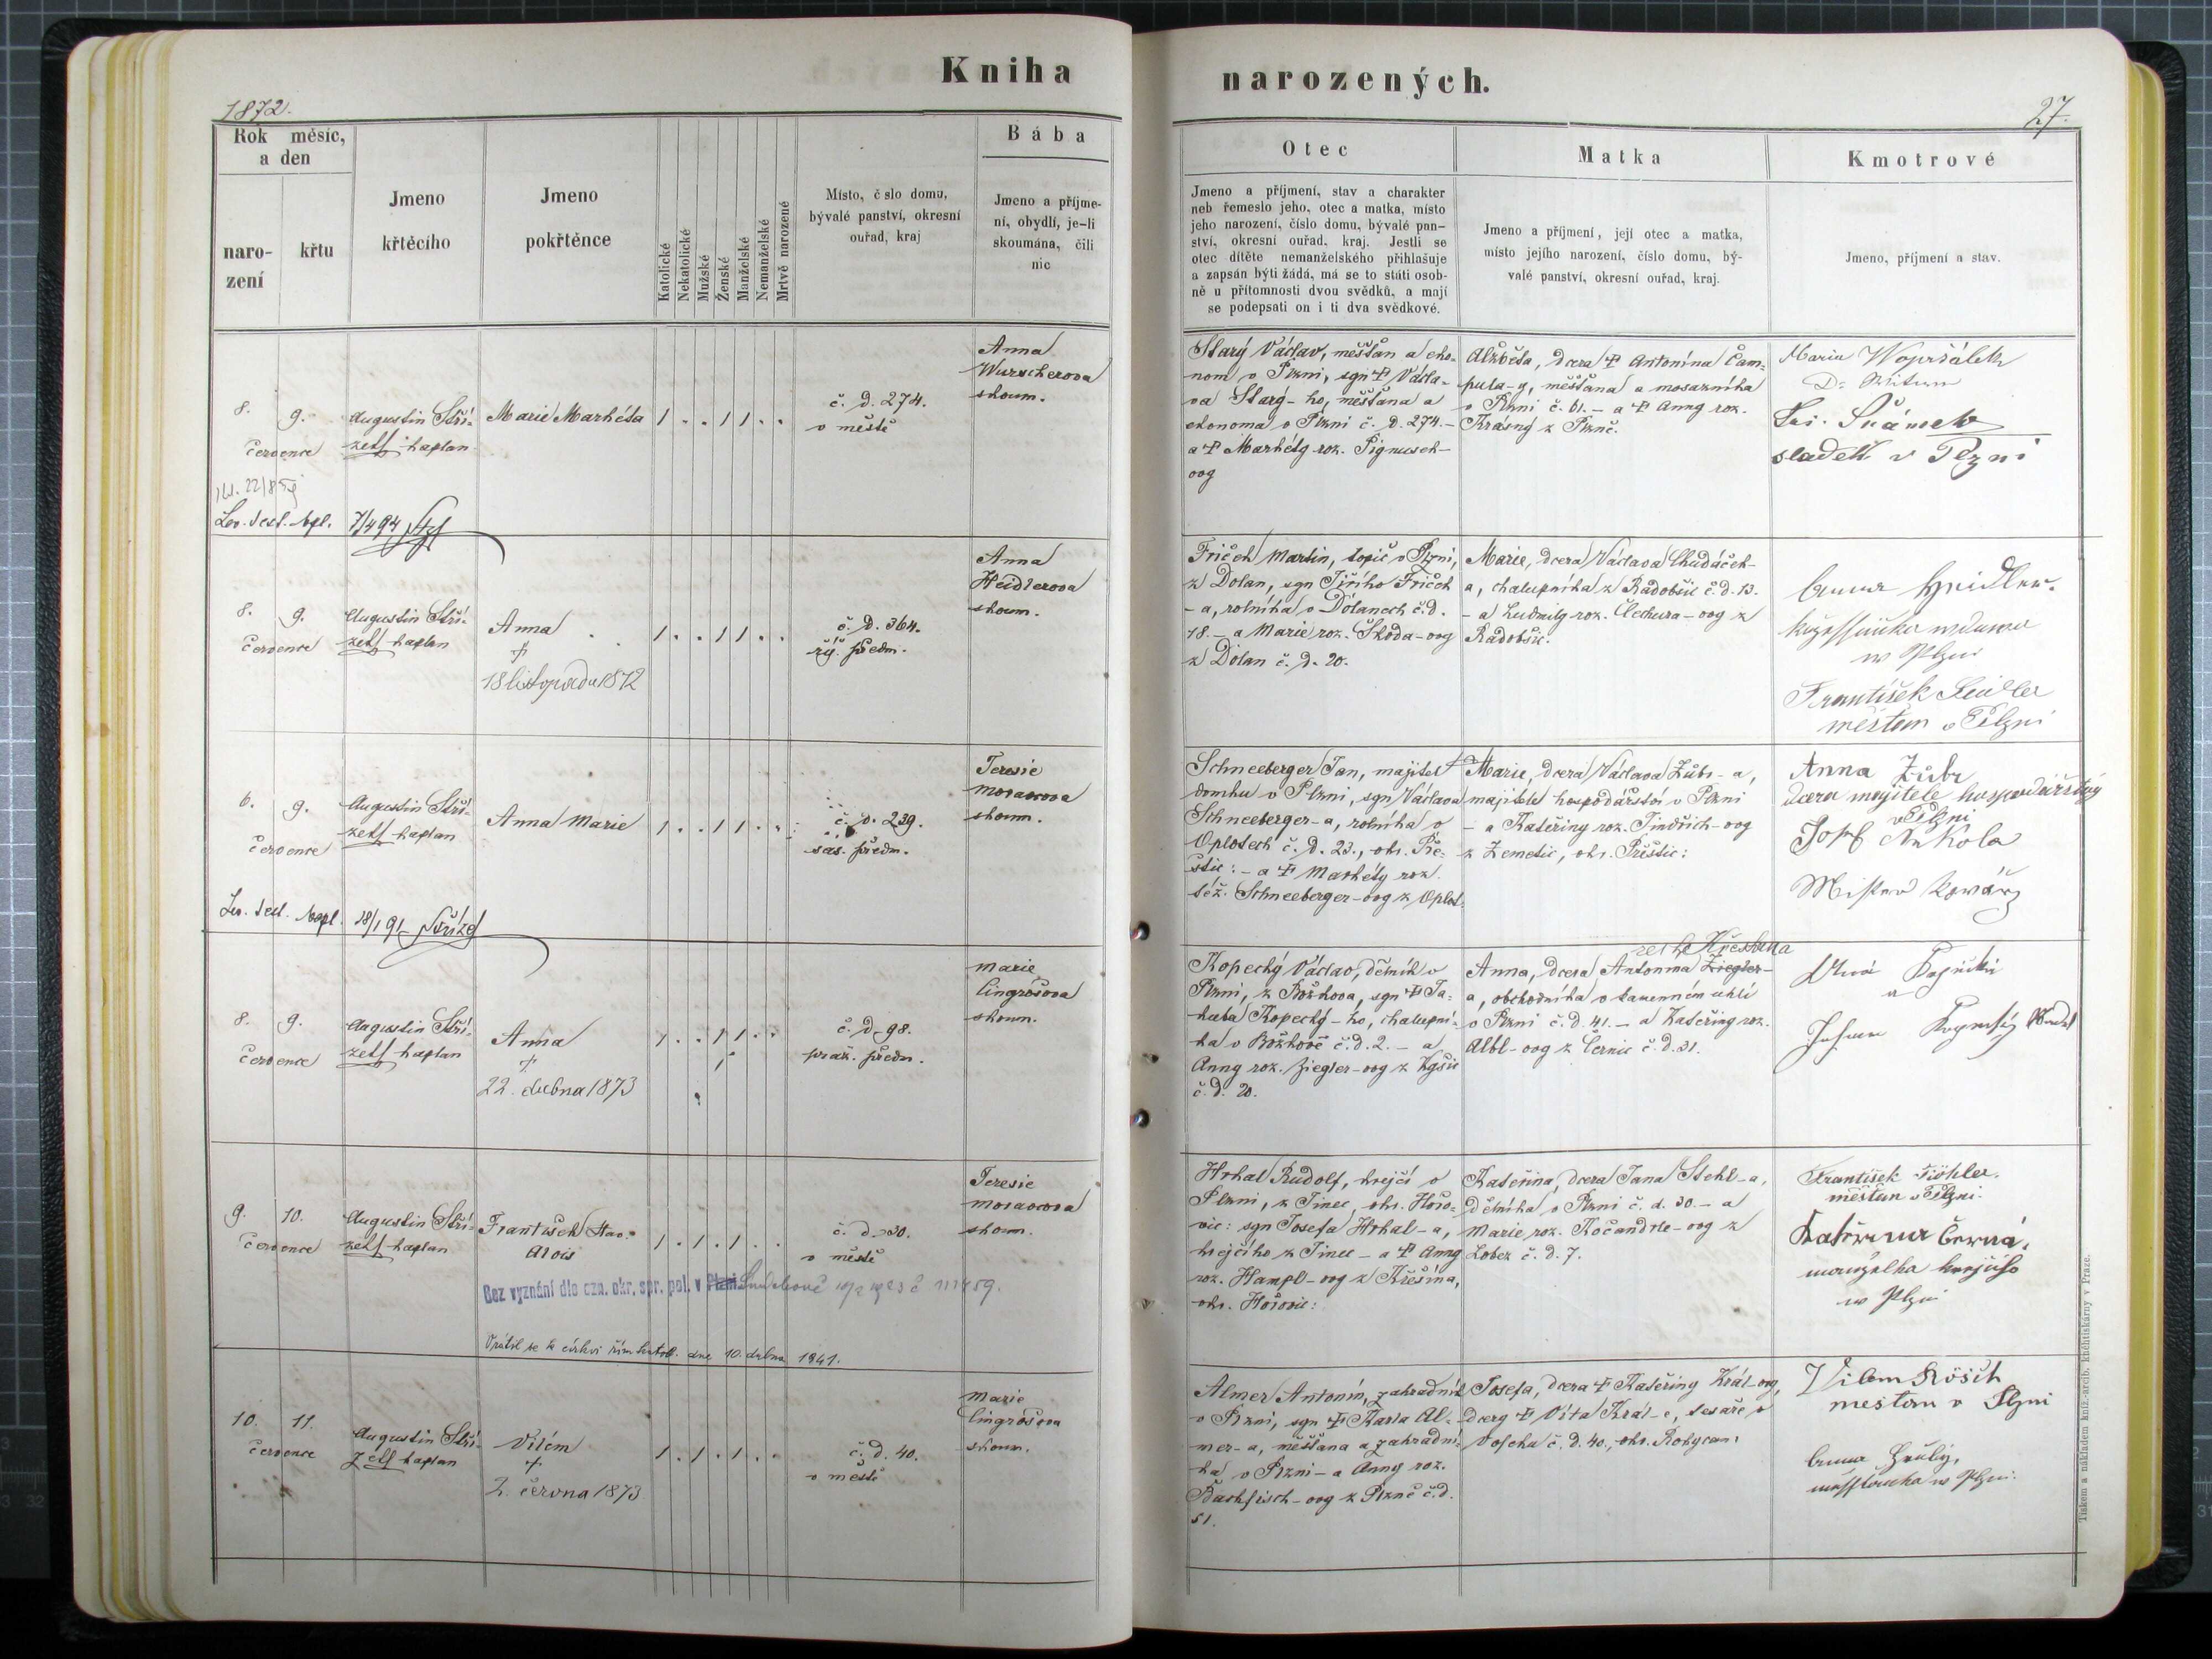 Kniha
narozených.
1872.
27.
Rok měsíc,
a den
naro-
zení
křtu
Jmeno
křtěcího
Jmeno
pokřtěnce
Katolické
Nekatolické
Mužské
Ženské
Manželské
Nemanželské
Mrtvě narozené
Místo, číslo domu,
bývalé panství, okresní
ouřad, kraj
Bába
Jmeno a příjme-
ní, obydlí, je-li
skoumána, čili
nic
Otec
Jmeno a příjmení, stav a charakter
neb řemeslo jeho, otec a matka, místo
jeho narození, číslo domu, bývalé pan-
ství, okresní ouřad, kraj. Jestli se
otec dítěte nemanželského přihlašuje
a zapsán býti žádá, má se to státi osob-
ně u přítomnosti dvou svědků, a mají
se podepsati on i ti dva svědkové.
Matka
Jmeno a příjmení, její otec a matka,
místo jejího narození, číslo domu, bý-
valé panství, okresní ouřad, kraj.
Kmotrové
Jmeno, příjmení a stav.
8. 9.
července
Augustin Stří-
zek kaplan
Marie Markéta
č. d. 274.
v městě
Anna
Wurscherova
skoum.
Starý Václav, měšťan a eko-
nom v Plzni, syn † Václa-
va Starý-ho, měšťana a
ekonoma v Plzni č. d. 274. –
a † Markéty roz. Pignusch-
ovy
Alžběta, dcera † Antonína Čam-
pula-y, měšťana a mosazníka
v Plzni č. 61. – a † Anny roz.
Krásný z Plzně.
Maria
sladek v Plzni
7/4 94
8. 9.
července
Augustin Stří-
zek kaplan
Anna
†
18 listopadu 1872
č. d. 364.
říš. předm.
Anna
Heidlerova
skoum.
Friček Martin, topič v Plzni,
z Dolan, syn Jiřího Friček
-a, rolníka v Dolanech č. d.
18. – a Marie roz. Škoda-ovy
z Dolan č. d. 20.
Marie, dcera Václava Chudáček-
a, chalupníka z Radobšic č. d. 13.
– a Ludmily roz. Čechura-ovy z
Radobšic.
w Plzni
František Heidler
městan v Plzni
6. 9.
července
Augustin Stří-
zek kaplan
Anna Marie
č. d. 239.
sas. předm.
Teresie
Moravcova
skoum.
Schneeberger Jan, majitel
domku v Plzni, syn Václava
Schneeberger-a, rolníka v
Oplotech č. d. 23., okr. Pře-
štic: – a † Markéty roz.
též. Schneeberger-ovy z Oplot.
Marie, dcera Václava Zubr-a,
majitele hospodářství v Plzni
– a Kateřiny roz. Jindřich-ovy
z Zemetic, okr. Přeštic:
Anna Zubr
dcera majitele hospodářství
v Plzni
Josef
18/1 91
8. 9.
července
Augustin Stří-
zek kaplan
Anna
†
22. dubna 1873
č. d. 98.
praž. předm.
Marie
Lingrošova
skoum.
Kopecký Václav, dělník v
Plzni, z Božkova, syn † Ja-
kuba Kopecký-ho, chalupní-
ka v Božkově č. d. 2. – a
Anny roz. Ziegler-ovy z Kyšic
č. d. 20.
Anna, dcera Antonína Ziegler-
a, obchodníka v kamenném uhlí
v Plzni č. d. 41. – a Kateřiny roz.
Albl-ovy z Černic č. d. 31.
9. 10.
července
Augustin Stří-
zek kaplan
František
Alois
č. d. 30.
v městě
Teresie
Moravcova
skoum.
Hrkal Rudolf, krejčí v
Plzni, z Jinec, okr. Hořo-
vic: syn Josefa Hrkal-a,
krejčího z Jinec – a † Anny
roz. Hampl-ovy z Křešína,
okr. Hořovic:
Kateřina, dcera Jana Stehl-a,
dělníka v Plzni č. d. 30. – a
Marie roz. Kočandrle-ovy z
Lobez č. d. 7.
městan v Plzni.
Kateřina Černá,
manželka
w Plzni
Bez vyznání dle ozn. okr. spr. pol. v
Vrátil se k církvi řím. katol. dne 10. dubna 1941.
10. 11.
července
Augustin Stří-
zek kaplan
Vilém
†
2. června 1873
č. d. 40.
v městě
Marie
Lingrošova
skoum.
Almer Antonín, zahradník
v Plzni, syn † Karla Al-
mer-a, měšťana a zahradní-
ka v Plzni – a Anny roz.
Backfisch-ovy z Plzně č. d.
51.
Josefa, dcera † Kateřiny Král-ovy,
dcery † Víta Král-e, tesaře v
Voseku č. d. 40., okr. Rokycan:
Vilem Rösch
mestan v Plzni
Tiskem a nákladem kníž.-arcib. kněhtiskárny v Praze.